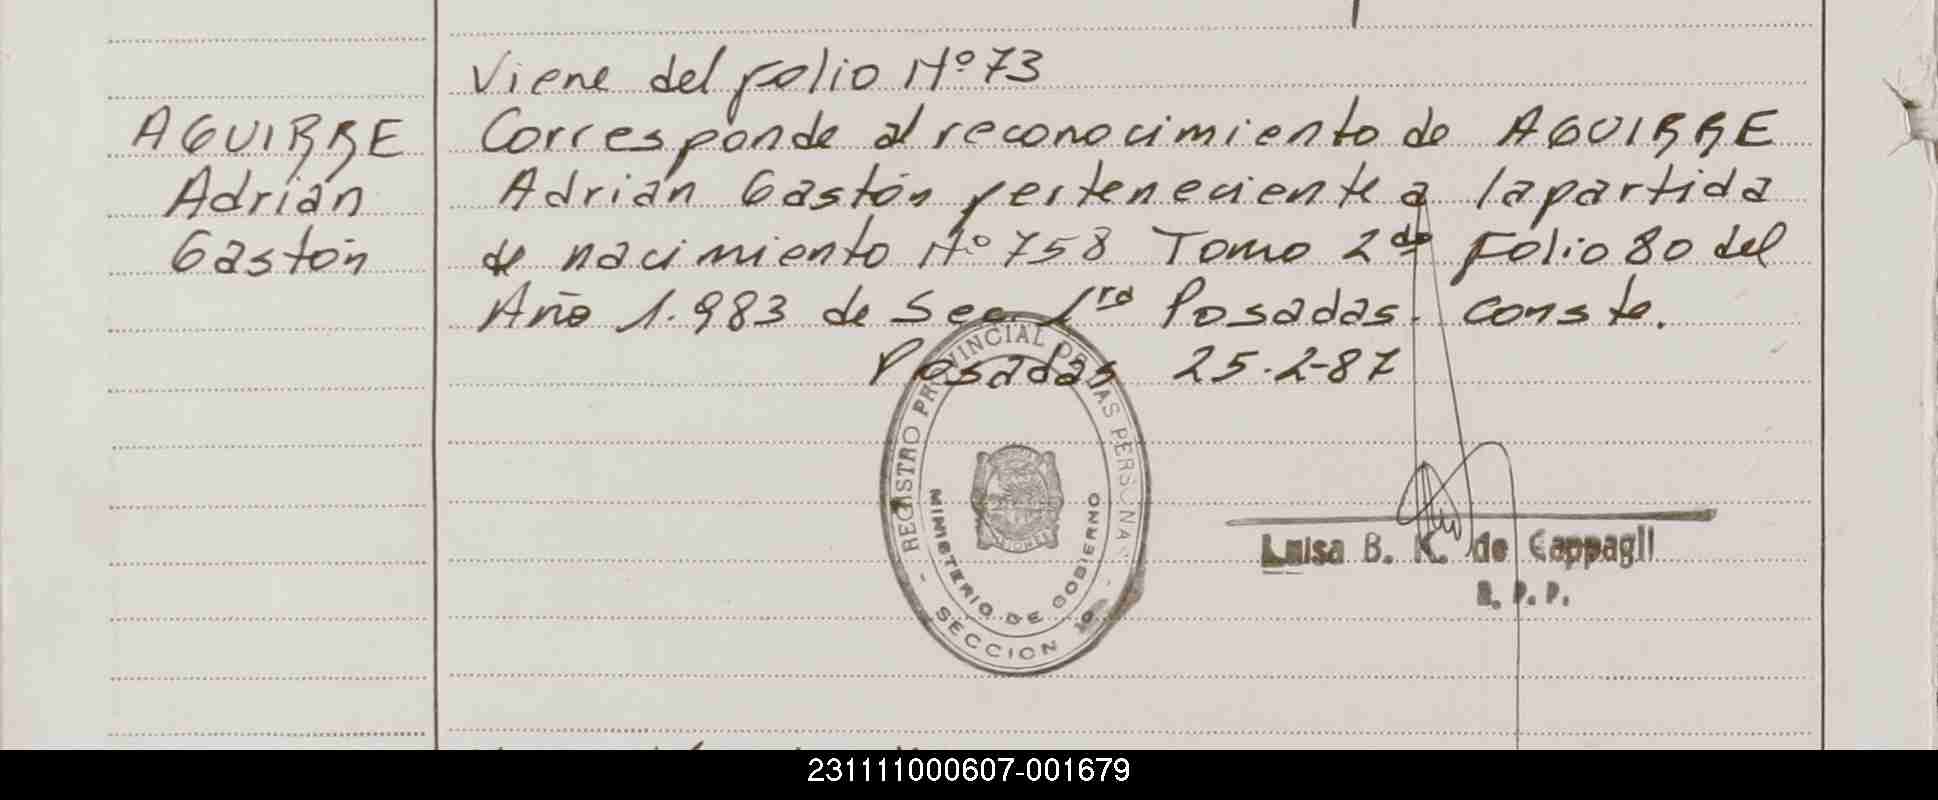 Viene del folio Nº 73
AGUIRRE
Adrián
Gastón
Corresponde al reconocimiento de AGUIRRE
Adrián Gastón perteneciente a la partida
de nacimiento Nº 758 Tomo 2do Folio 80 del
Año 1.983 de Sec. 1ra Posadas. conste.
Posadas 25-2-87
REGISTRO PROVINCIAL DE LAS PERSONAS
MINISTERIO DE GOBIERNO
SECCION 1º
Luisa B. K. de Cappagli
R. P. P.
231111000607-001679